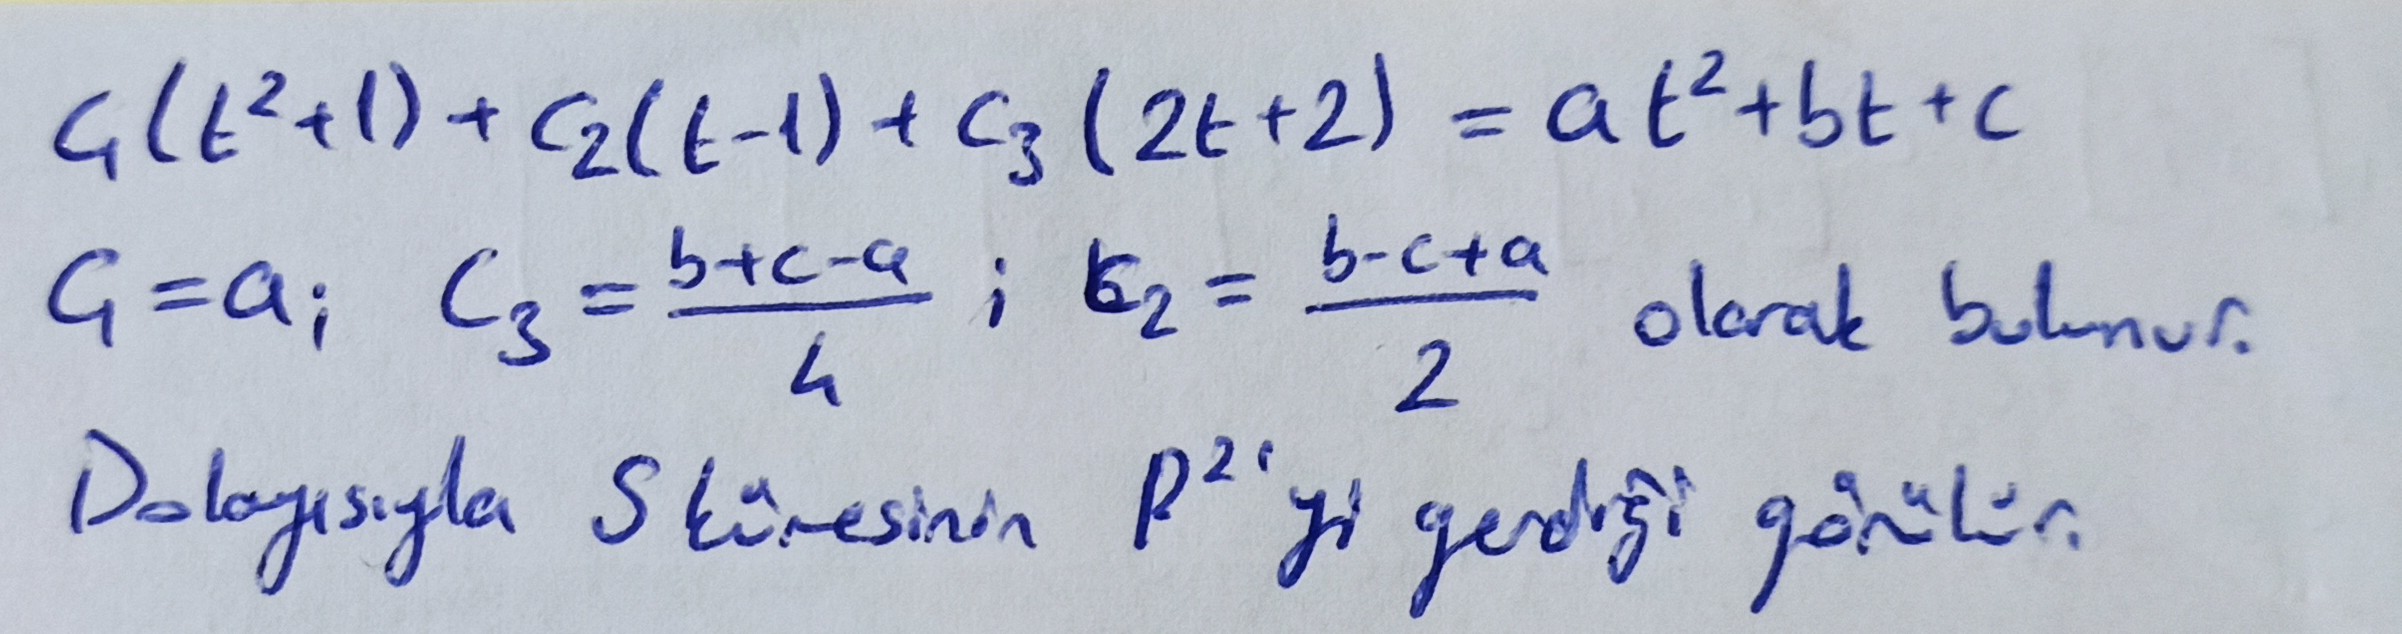 C₁(t²+1) + C₂(t-1) + C₃(2t+2) = at²+bt+c
C₁=a; C₃ = (b+c-a)/4 ; C₂ = (b-c+a)/2 olarak bulunur.
Dolayısıyla S kümesinin P²'yi gerdiği görülür.